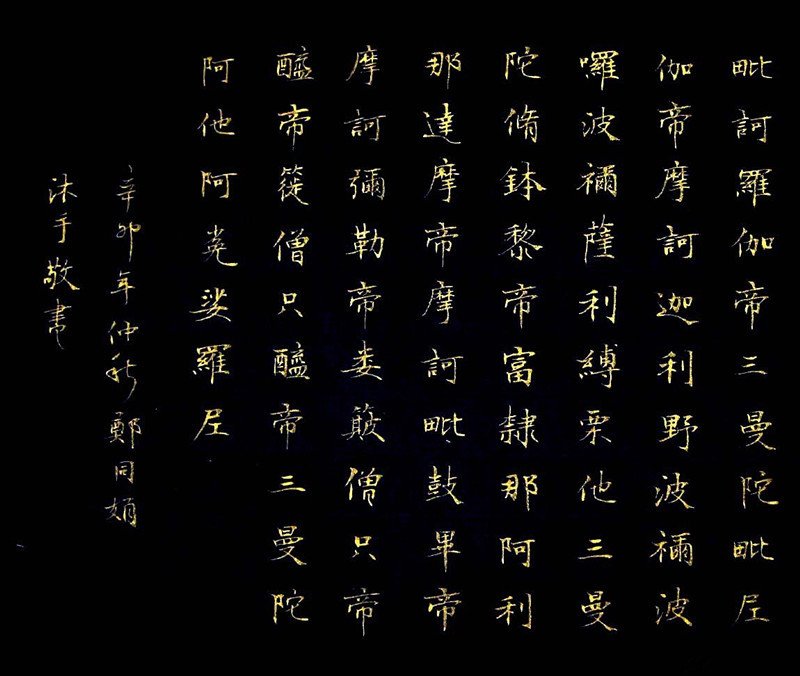 毗訶羅伽帝三曼陀毗尼
伽帝摩訶迦利野波禰波
囉波禰薩利縛栗他三曼
陀脩鉢黎帝富隸那阿利
那達摩帝摩訶毗鼓畢帝
摩訶彌勒帝婁簸僧只帝
醯帝簁僧只醯帝三曼陀
阿他阿㝹娑羅尼
辛卯年仲秋鄭同娟
沐手敬書